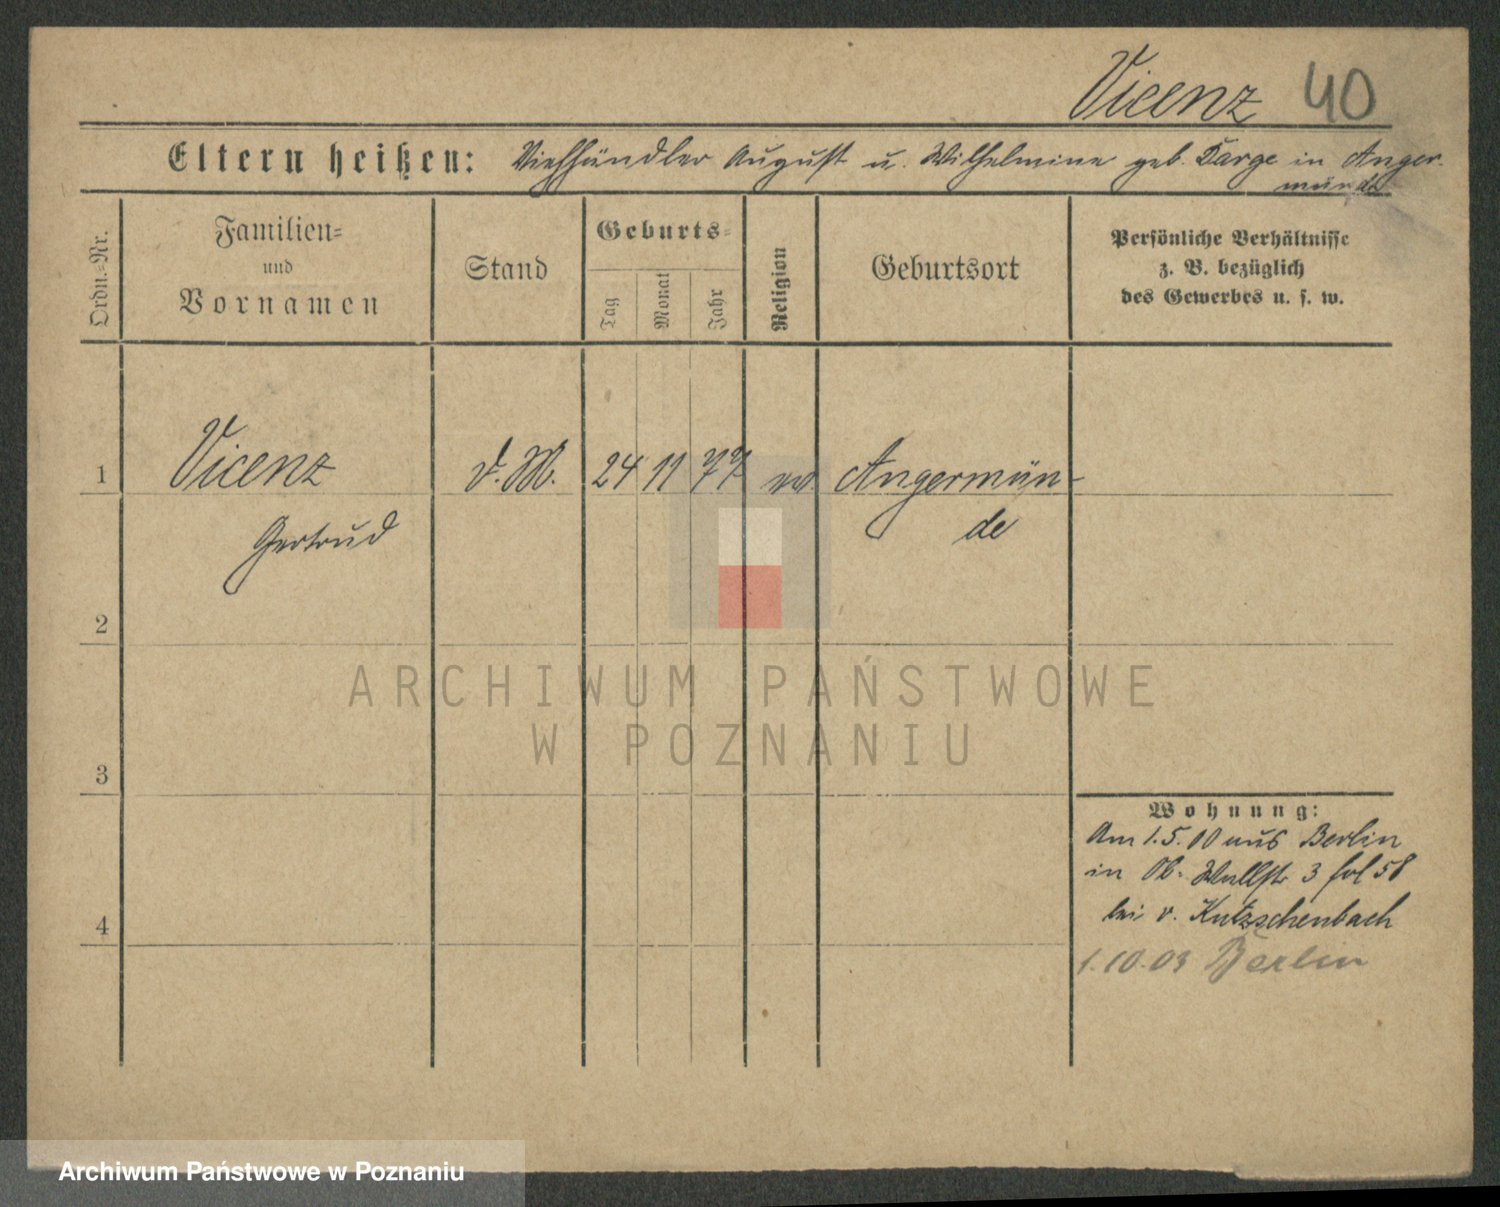 Vicenz 40
Eltern heißen: Viehhändler August u. Wilhelmine geb. Darge in Anger-
münde
Ordn.=Nr.
Familien=
und
Vornamen
Stand
Geburts=
Tag
Monat
Jahr
Religion
Geburtsort
Persönliche Verhältnisse
z. B. bezüglich
des Gewerbes u. s. w.
1 Vicenz d. M. 24 11 77 ev. Angermün-
Gertrud de
2
3
4
ARCHIWUM PAŃSTWOWE
W POZNANIU
Wohnung:
Am 1.5.00 aus Berlin
in Ob. Wallstr 3 fol 58
bei v. Kutzschenbach
1.10.03 Berlin
Archiwum Państwowe w Poznaniu